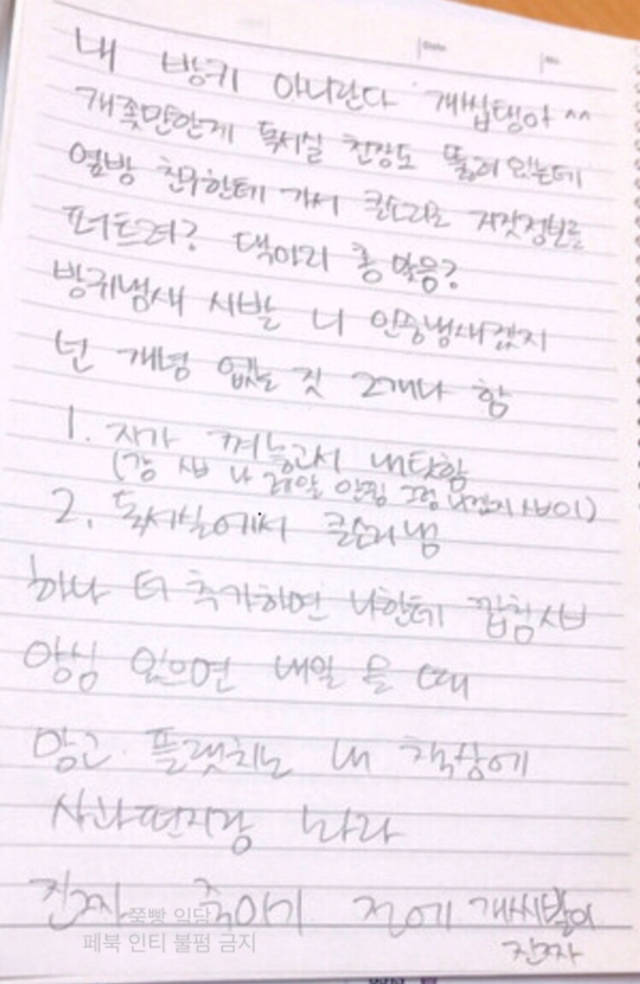 내 방귀 아니란다 개씹탱아 ^^
개좆만한게 독서실 천장도 뚫려 있는데
옆방 친구한테 가서 큰소리로 거짓정보를
퍼트려? 대가리 총 맞음?
방귀냄새 시발 니 인중냄새겠지
넌 개념 없는 짓 2개나 함
1. 지가 껴놓고서 내탓함
2. 독서실에서 큰소리냄
하나 더 추가하면 나한테 깝침 시브
양심 있으면 내일 올 때
망고 플랫치노 내 책상에
사과편지랑 놔라
진짜 죽이기 전에 개씨발아
진짜
쭉빵 익담
페북 인티 불펌 금지